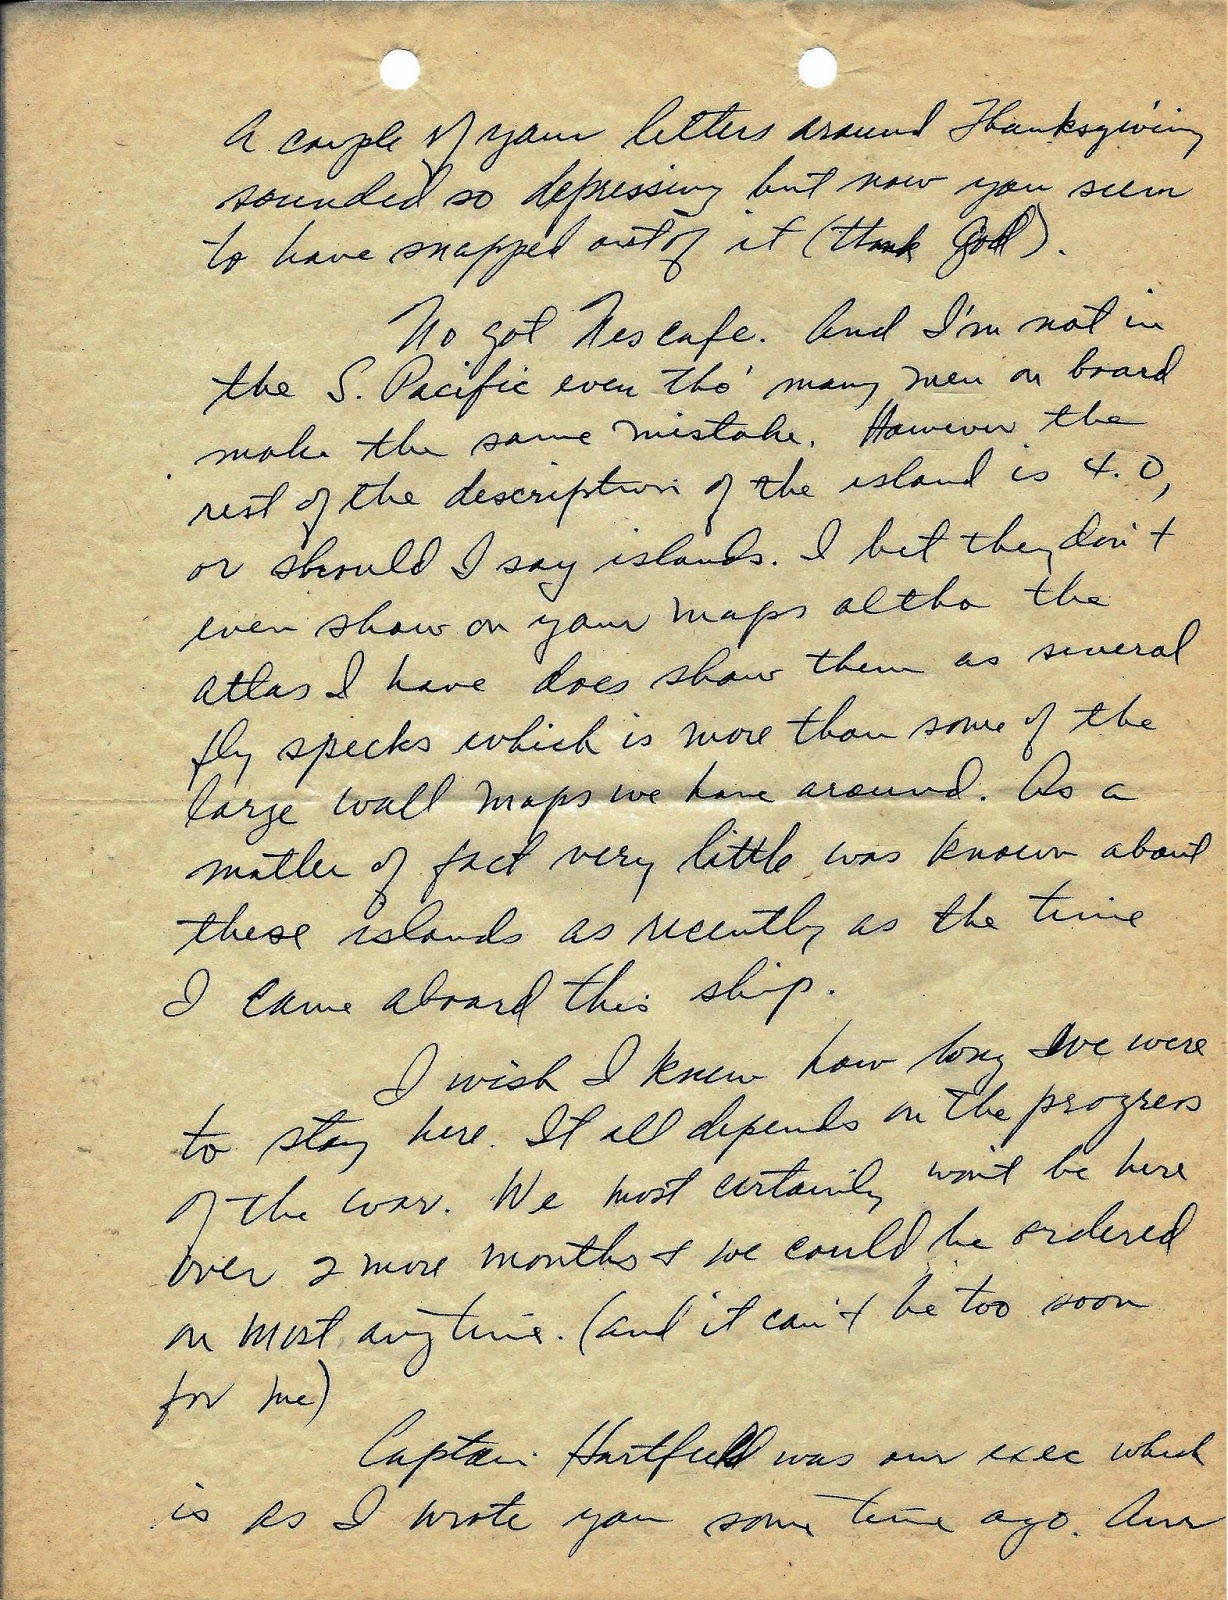 A couple of your letters around Thanksgiving
sounded so depressing but now you seem
to have snapped out of it (thank God).
No got Nescafe. And I'm not in
the S. Pacific even tho' many men on board
make the same mistake. However the
rest of the description of the island is 4.0,
or should I say islands. I bet they don't
even show on your maps altho the
atlas I have does show them as several
fly specks which is more than some of the
large wall maps we have around. As a
matter of fact very little was known about
these islands as recently as the time
I came aboard this ship.
I wish I knew how long we were
to stay here. It all depends on the progress
of the war. We most certainly won't be here
over 2 more months & we could be ordered
on most anytime. (and it can't be too soon
for me)
Captain Hartfield was our exec which
is as I wrote you some time ago. Our